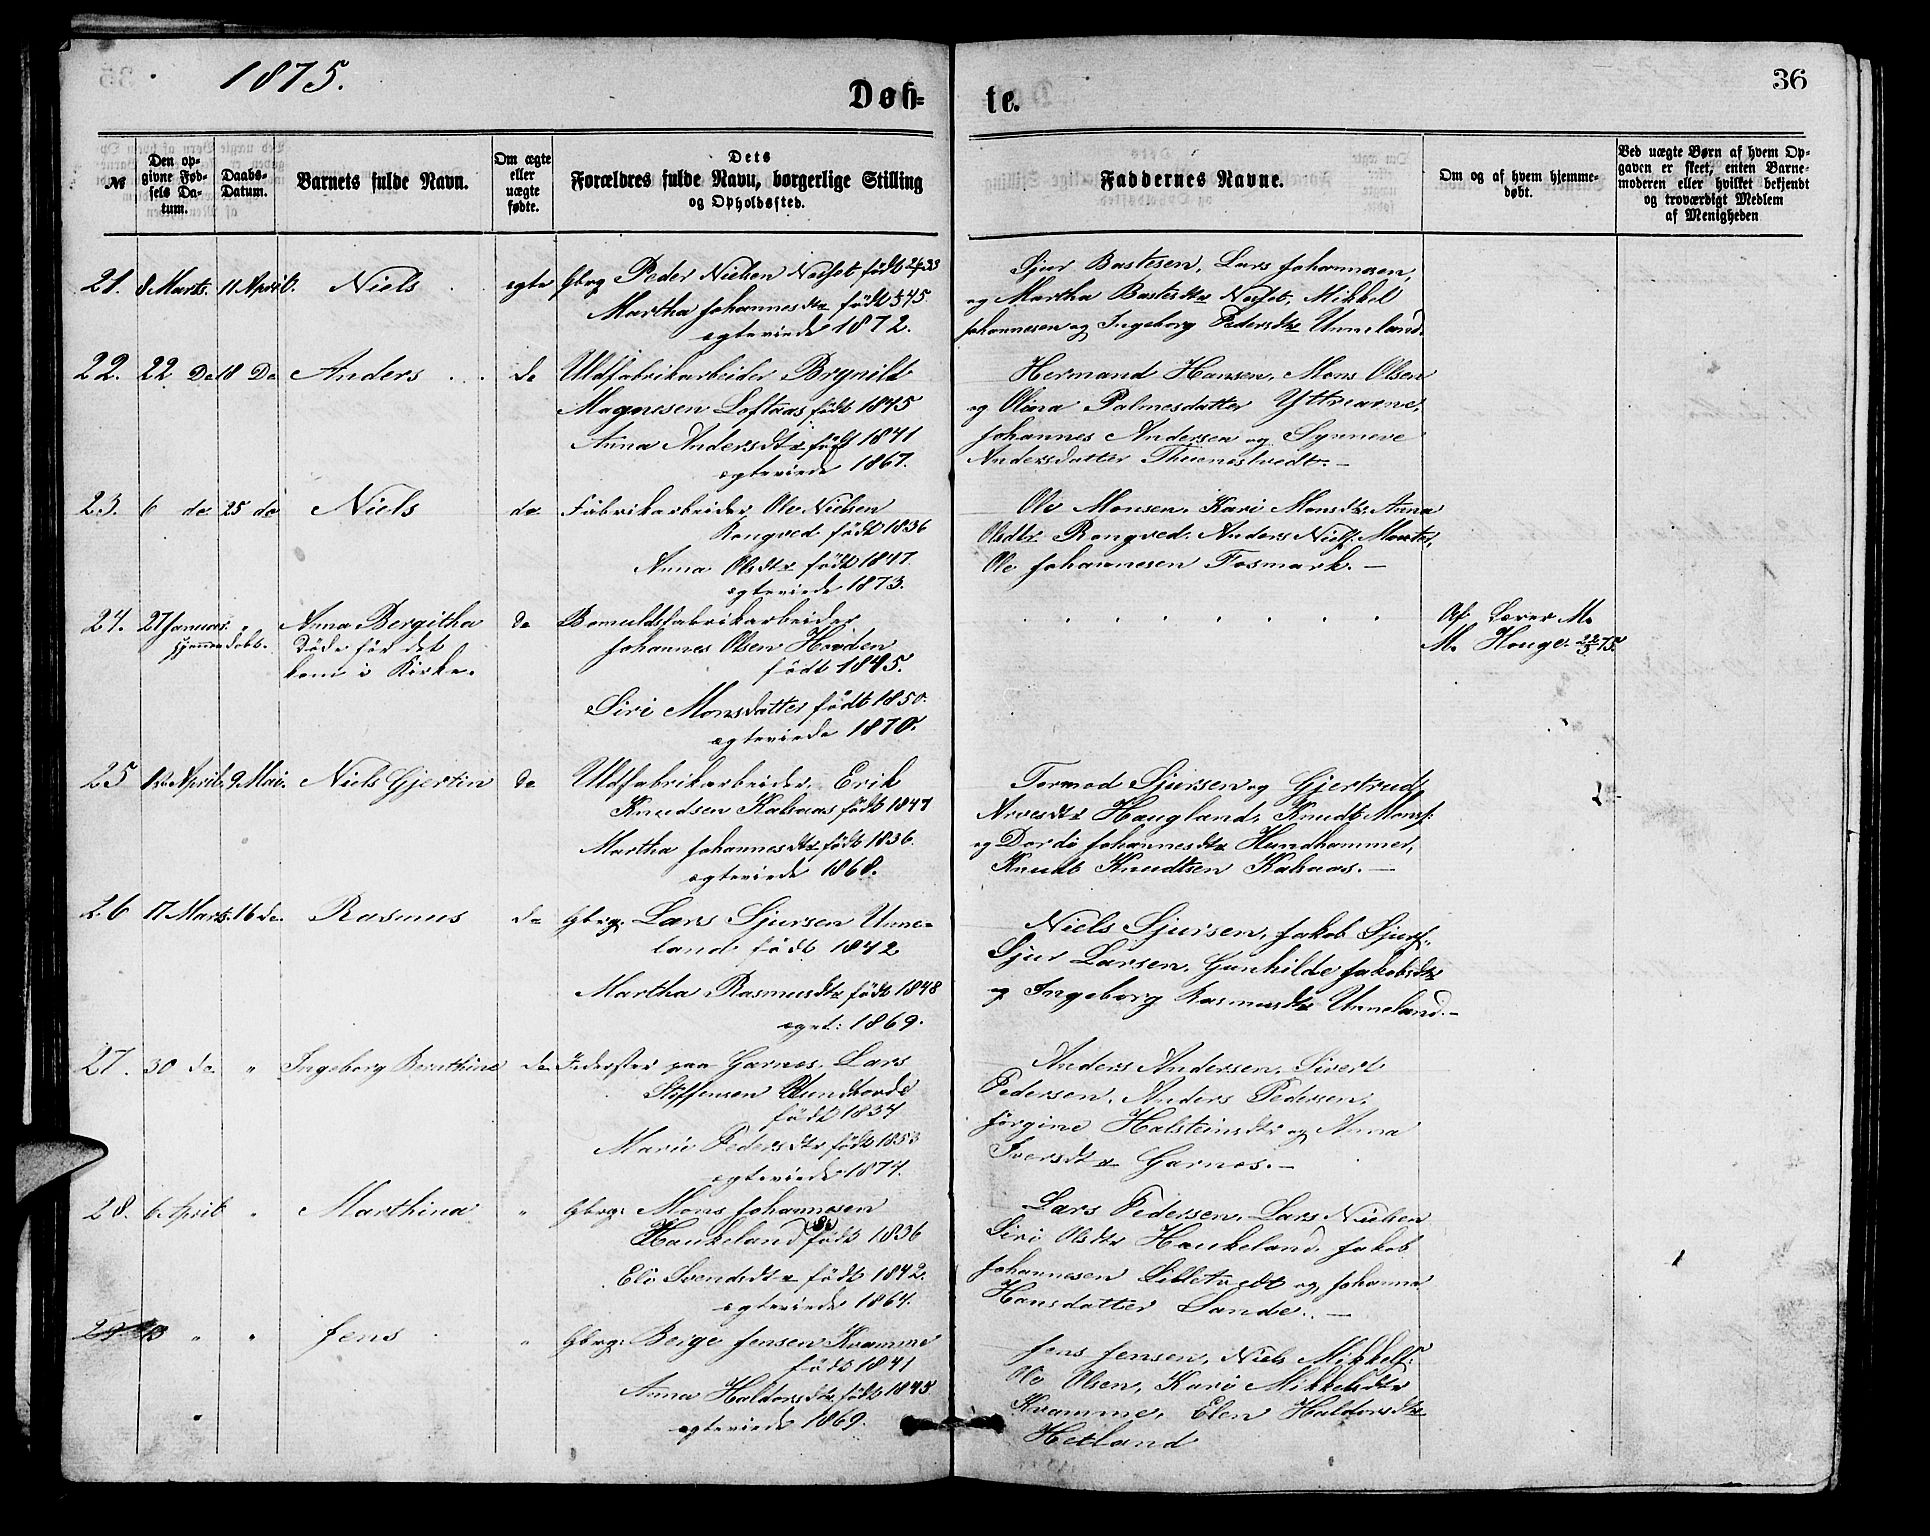 1875.
36
Døb=
te.
№
Den op-
givne Fød-
sels Da-
tum.
Daabs-
Datum.
Barnets fulde Navn.
Om ægte
eller
uægte
fødte.
Dets
Forældres fulde Navn, borgerlige Stilling
og Opholdssted.
Faddernes Navne.
Om og af hvem hjemme-
døbt.
Ved uægte Børn af hvem Op-
gaven er skeet, enten Barne-
moderen eller hvilket bekjendt
og troværdigt Medlem
af Menigheden
21. 8 Marts. 11 April. Niels ægte Gbrg Peder Nielsen født
Martha Johannesdtr født 45
ægteviede 1872.
Sjur Bastesen, Lars Johannesen,
og Martha Bastesdtr Mikkel
Johannesen og Ingeborg Pedersdtr Unneland.
22. 22 Do 18 Do Anders do Uldfabrikarbeider Brynild
Magnesen Loftaas født 1845
Anna Andersdtr født 1841
ægteviede 1867.
Hermand Hansen, Mons Olsen
og Olina Palmesdatter Yttrearne,
Johannes Andersen og Synneve
Andersdatter Thuenestvedt. –
23. 6 do 25 do Niels do Fabrikarbeider Ole Nielsen
Rongved født 1836
Anna Olsdtr født 1847.
ægteviede 1873.
Ole Monsen, Kari Monsdtr Anna
Olsdtr Rongved, Anders Niels.
Ole Johannesen Fosmark. –
24. 27 Januar " Anna Bergitha do Bomuldsfabrikarbeider
hjemmedøbt. Døde før det
kom i Kirke.
Johannes Olsen Hovden
født 1845.
Siri Monsdatter født 1850.
ægteviede 1870.
Af Lærer M.
M. Houge 75.
25 April. 9. Mai. Niels Gjertin do Uldfabrikarbeider, Erik
Knudsen Kalsaas født 1847
Martha Johannesdtr født 1836.
ægteviede 1868.
Tormod Sjursen og Gjertrud
Arvesdtr Haugland, Knudt Mons.
og Dordi Johannesdtr Hundhammer,
Knudt Knudtsen Kalsaas. –
26 17 Marts. 16 do. Rasmus do Gbrg: Lars Sjursen Unne-
land født 1842
Martha Rasmusdtr født 1848
ægt: 1869.
Niels Sjursen, Jakob Sjurs.
Sjur Larsen, Gunhilde Jakobsdtr
og Ingeborg Rasmusdtr Unneland. –
27. 30 do " Ingeborg Berthine do paa Garnes, Lars
Stoffensen
født 1834
Marie Pedersdtr født 1853
ægteviede 1874.
Anders Andersen, Sivert
Pedersen, Anders Pedersen,
Jørgine Halsteinsdtr og Anna
Iversdtr Garnes. –
28. 6 April " Marthina " Gbrg: Mons Johannesen
Haukeland født 1836
Eli Svendsdtr født 1842.
ægteviede 1864.
Lars Pedersen, Lars Nielsen
Siri Olsdtr Haukeland. Jakob
Johannesen Lilletvedt og Johanna
Hansdatter Sande. –
29 13 " " Jens " Gbrg: Berge Jensen Kvamme
født 1841
Anna Haldorsdtr født 1845
ægteviede 1869.
Jens Jensen, Niels Mikkels.
Ole Olsen, Kari Mikkelsdtr
Kvamme, Elen Haldorsdtr
Hetland